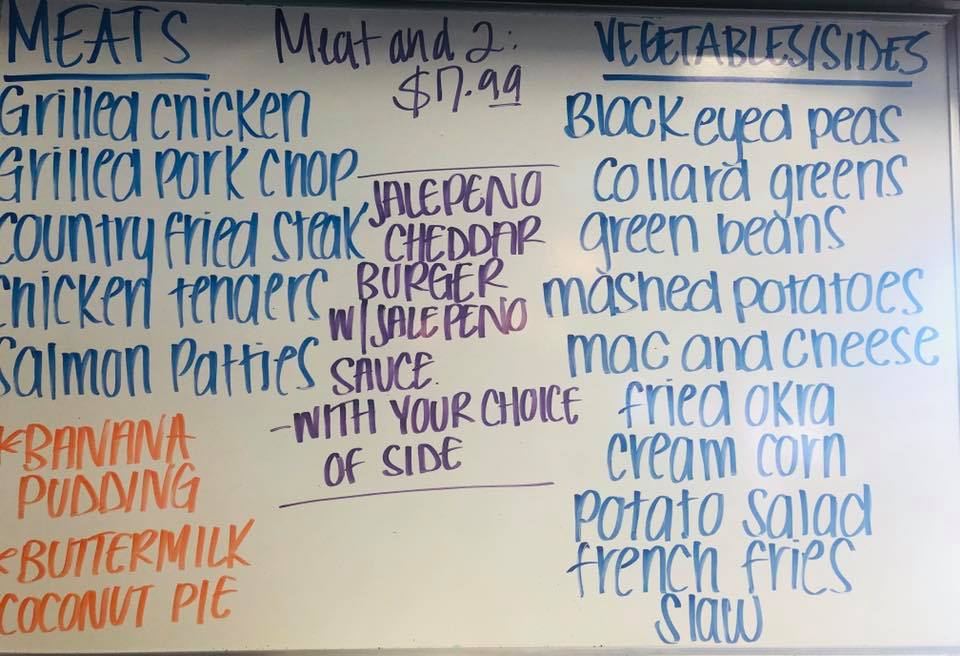 MEATS
Grilled chicken
Grilled pork chop
Country fried steak
chicken tenders
Salmon Patties
*BANANA
PUDDING
*BUTTERMILK
COCONUT PIE
Meat and 2:
$7.99
JALEPENO
CHEDDAR
BURGER
W/JALEPENO
SAUCE.
-WITH YOUR CHOICE
OF SIDE
VEGETABLES/SIDES
Black eyed peas
collard greens
green beans
mashed potatoes
mac and cheese
fried okra
cream corn
potato salad
french fries
slaw